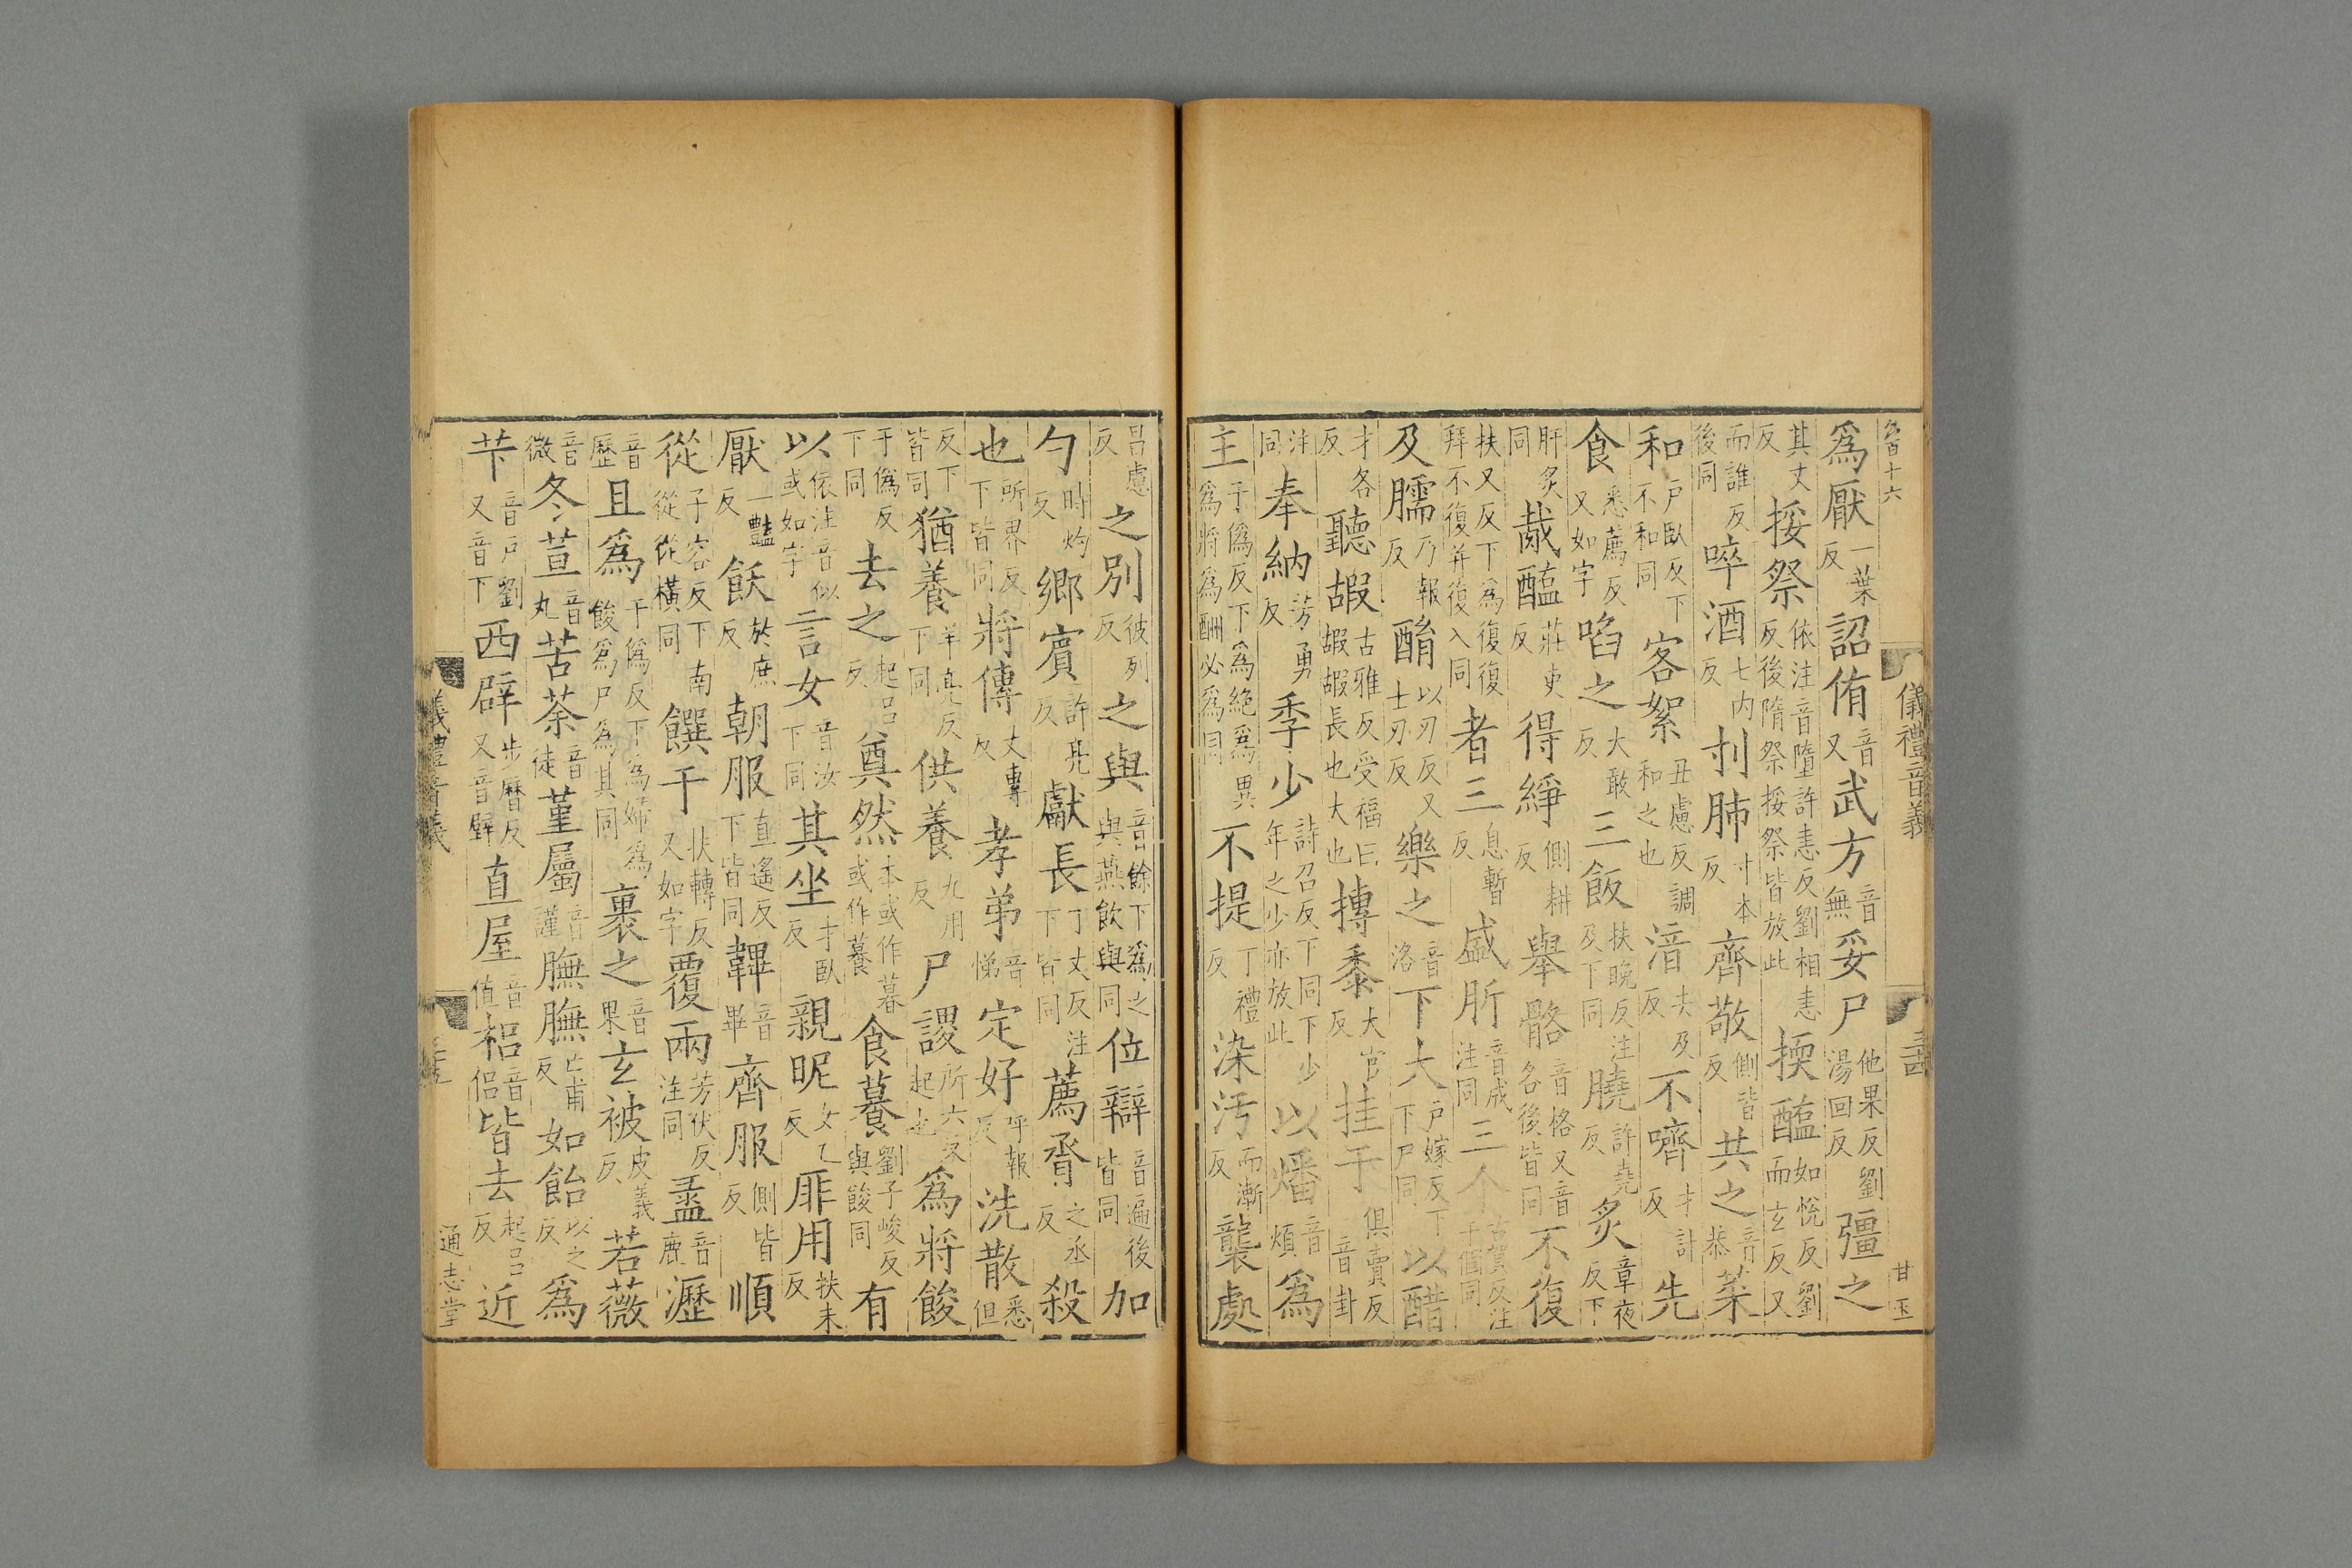 爲厭一葉反詔侑音又武方音無妥尸他果反劉湯回反彊之
其丈反挼祭依注音墮許恚反劉相恚反後隋祭挼祭皆放此擩醢如悅反劉而玄反又
而誰反後同啐酒七内反刌肺寸本反齊敬側皆反共之音恭菜
和戶臥反下不和同客絮丑慮反調和之也湆去及反不嚌才計反先
食悉薦反又如字啗之大敢反三飯扶晚反注及下同膮許堯反炙章夜反下
肝炙同胾醢莊吏反得綪側耕反舉骼音格又音各後皆同不復
扶又反下爲復復拜不復并復入同者三息暫反盛肵音成注同三个古賀反注千個同
及臑乃報反酳以刃反又士刃反樂之音洛下大戶嫁反下下尸同以醋
才各反聽嘏古雅反受福曰嘏嘏長也大也摶黍大官反挂于俱賣反音卦
注同奉納芳勇反季少詩召反下同下少年之少亦放此以燔音煩爲
主于僞反下爲絶爲異爲將爲酬必爲同不提丁禮反染汚而漸反襲處
昌慮反之別彼列反之與音餘下爲之與燕飲與同位辯音遍後皆同加
勺時灼反鄉賓許亮反獻長丁丈反注下皆同薦脀之丞反殺
也所界反下皆同將傳丈專反孝弟音悌定好呼報反洗散悉但
反下皆同猶養羊亮反下同供養九用反尸謖所六反起也爲將餕
于僞反下同去之起呂反奠然本或作暮或作䔳食䔳劉子峻反與餕同有
以依注音似或如字言女音汝下同其坐才臥反親昵女乙反厞用扶未反
厭一豔反飫於庶反朝服直遙反下皆同韠音畢齊服側皆反順
從子容反下南從從橫同饌于扶轉反又如字覆兩芳伏反注同盝音鹿瀝
音歷且爲于僞反下爲婦爲餕爲尸爲其同裹之音果玄被皮義反若薇
音微冬荁音丸苦荼音徒堇屬音謹膴膴亡甫反如飴以之反爲
芐音戶劉又音下西辟步曆反又音壁直屋音值梠音侶皆去起呂反近
儀禮音義
甘玉
儀禮音義
通志堂